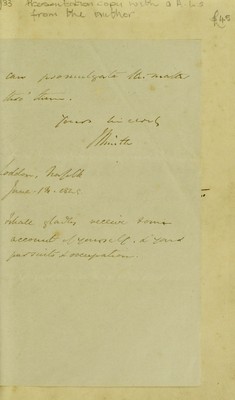 copy with a A L S
from the author
£45
can promulgate the mark
thro' them.
Yours sincerely
Loddon, Norfolk
June 18
I shall gladly receive some
account of yourself, & your
pursuits & occupation.